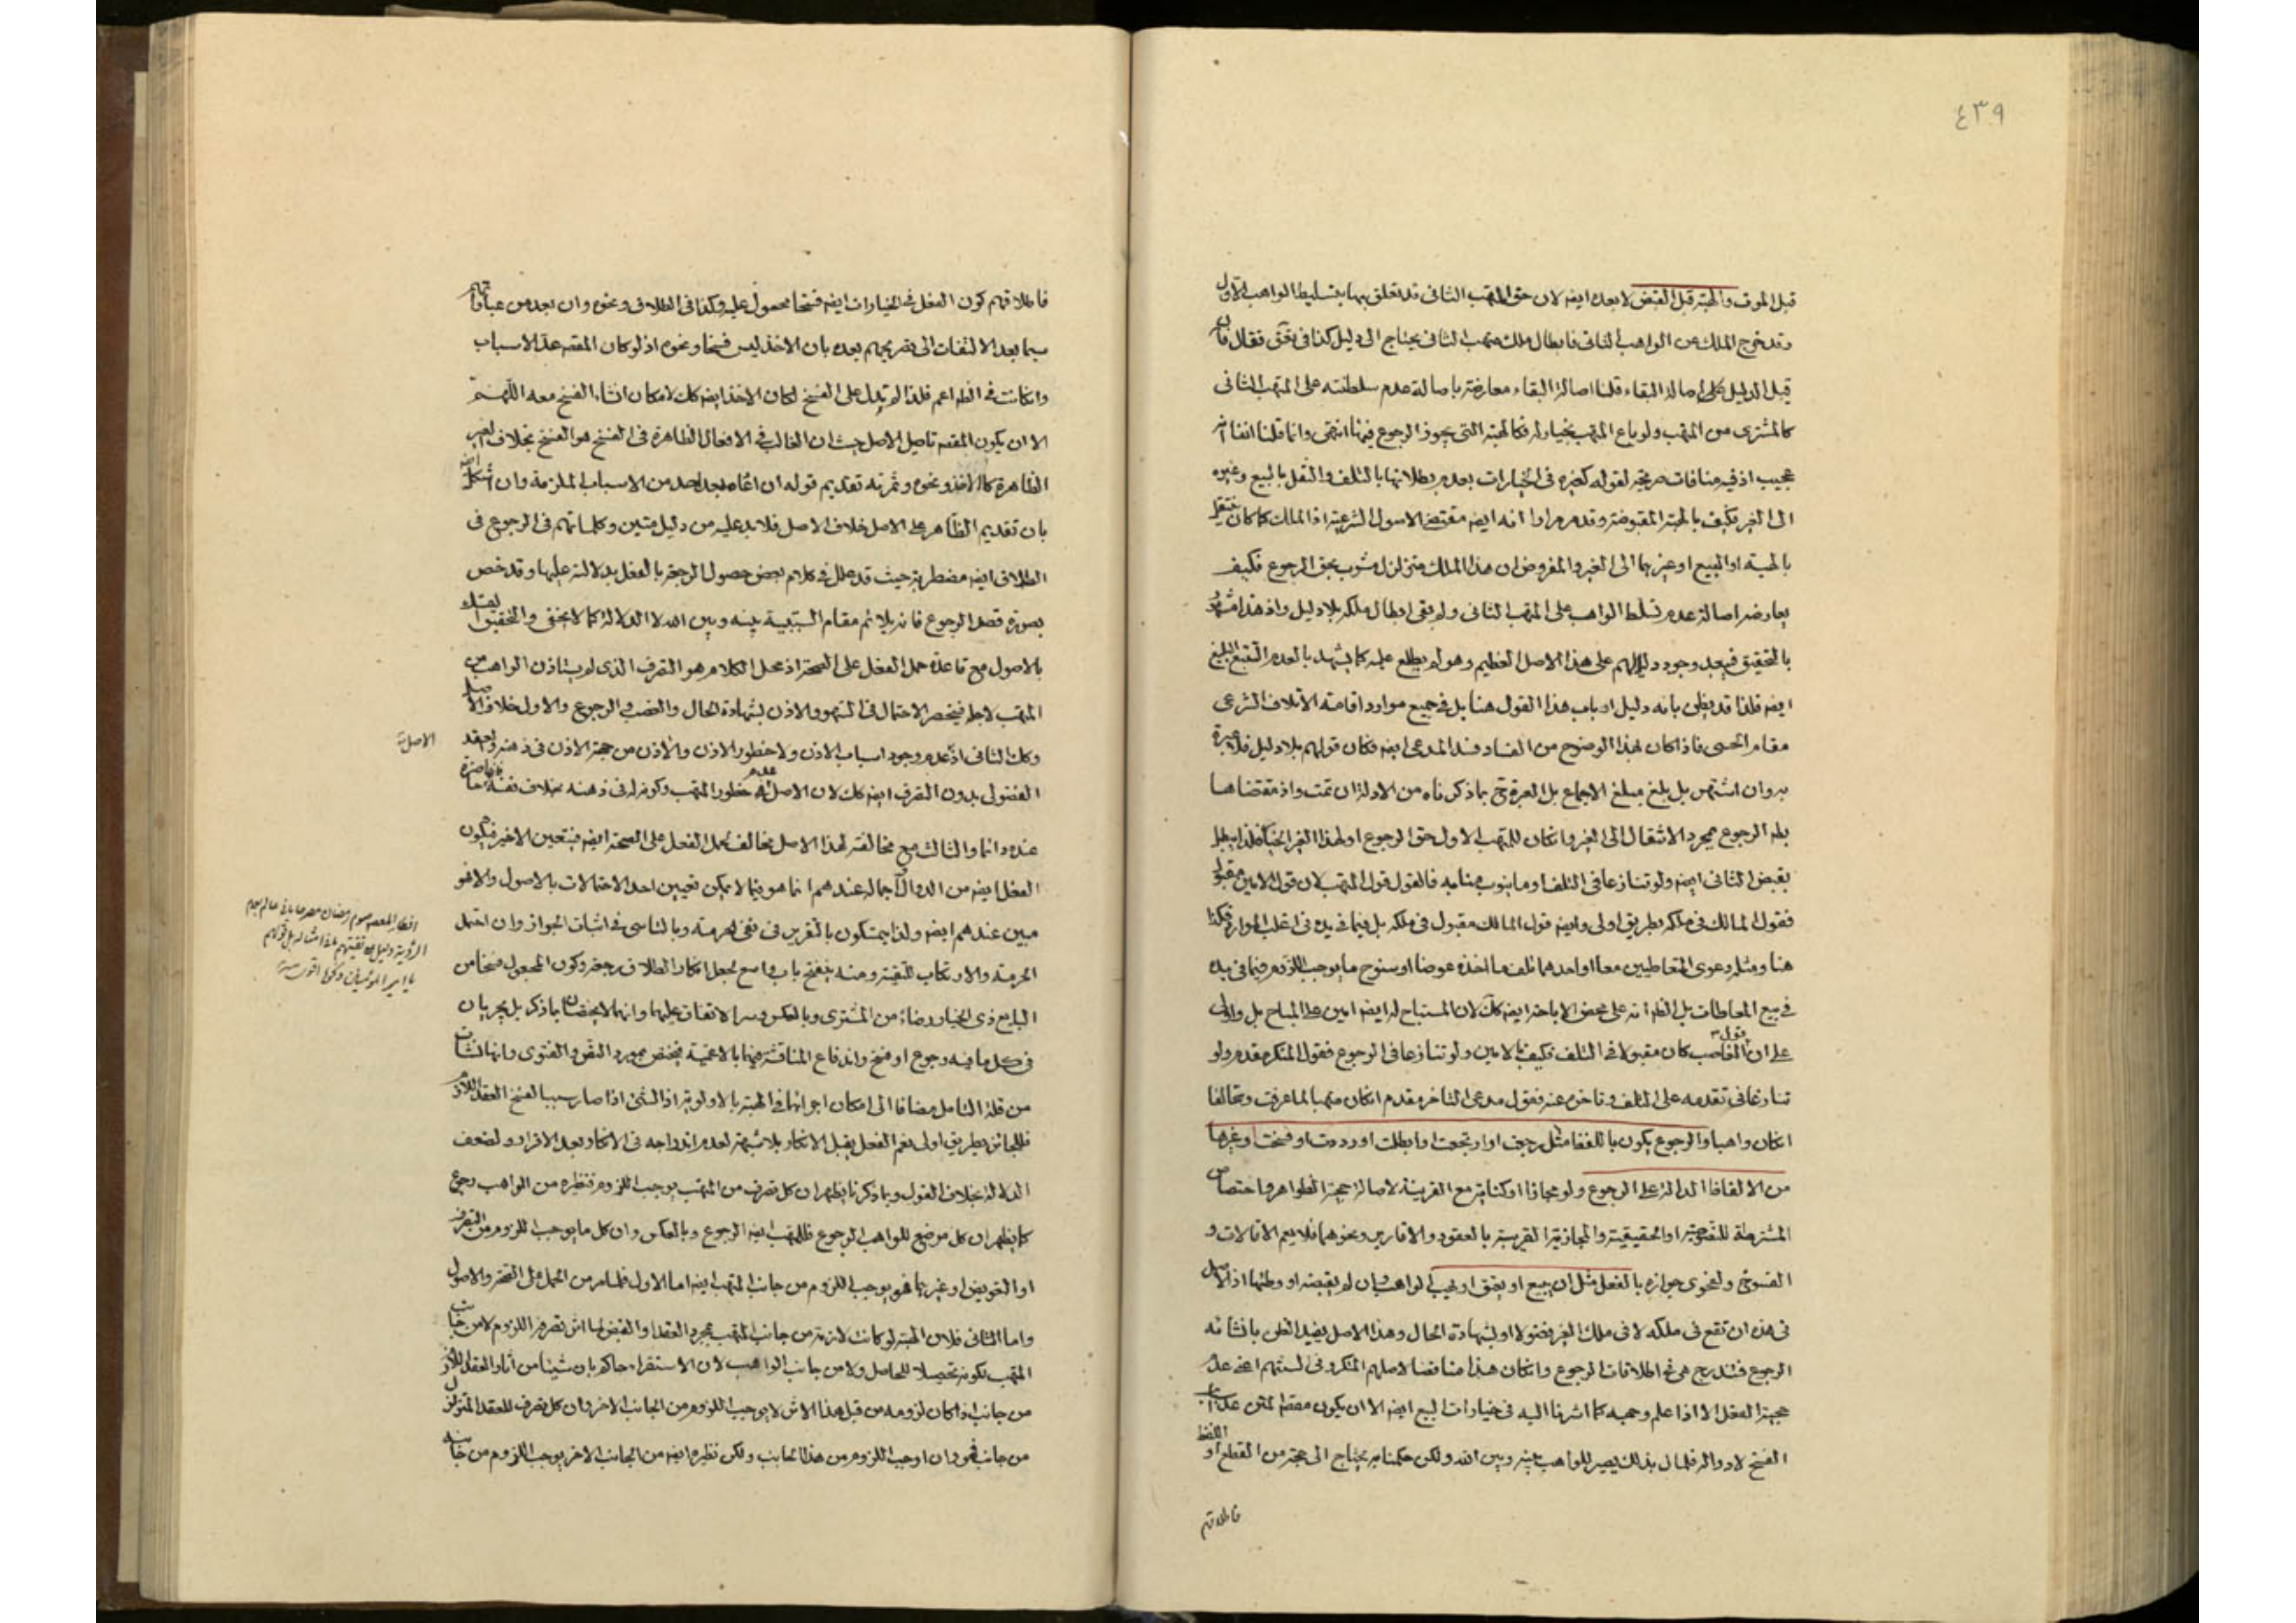 ٤٣٩
قبل الموت والهبة قبل القبض لا بعده ايضه لان حق المتهب الثانى قد تعلق بها بتسليط الواهب الاول
وقد خرج الملك عن الواهب الثانى فابطال ملك متهب الثانى يحتاج الى دليل كذا فى فقال فان
قيل الدليل على اصالة البقاء قلنا اصالة البقاء معارضة باصالة عدم سلطنته على المتهب الثانى
كالمشترى من المتهب ولو باع المتهب بخيار له فكالهبة التى يجوز الرجوع فيها انتهى وانما قلنا انفا انه
عجيب اذ فيه منافات صريحة لقوله كغيره فى الخيارات بعدم بطلانها بالتلف والنقل بالبيع وغيره
الى الغير فكيف بالهبة المقبوضة وقد مر مرارا انه ايضه مقتضى الاصول الشرعية اذ الملك كما كان ينتقل
بالهبة او البيع او غيرهما الى الغير والمفروض ان هذا الملك متزلزل مشوب بحق الرجوع فكيف
يعارضه اصالة عدم تسلط الواهب على المتهب الثانى ولم يبق ابطال ملكه بلا دليل واذ هذا مشهود
بالتحقيق فيبعد وجود دليل لهم على هذا الاصل العظيم وهو لم يطلع عليه كما يشهد بالعدم التتبع البليغ
ايضه فلذا قد يظن بانه دليل ارباب هذا القول هنا بل فى جميع موارد اقامة الاتلاف الشرعى
مقام الحسى فاذا كان بهذا الوضوح من الفساد فسد المدعى ايضه فكان قولهم بلا دليل فلا عبرة
به وان اشتهر بل بلغ مبلغ الاجماع بل العبرة ح بما ذكرناه من الادلة ان تمت واذ مقتضاها
الرجوع بمجرد الانتقال الى الغير وانكان للمتهب الاول حق الرجوع او لهذا الغير
بقبض الثانى ايضه ولو تنازعا فى التلف او ما ينوب منابه فالقول قول المتهب لان قول الامين مقبول
فقول المالك فى ملكه بطريق اولى وايضه قول المالك مقبول فى ملكه بل فيما فى يده فى اغلب الموارد فكذا
هنا ومثله دعوى المتعاطيين معا او احدهما تلف ما اخذه عوضا او سنوح ما يوجب اللزوم فيما فى يده
فى بيع المعاطات بل الظه انه على محض الاباحة ايضه كك لان المستباح له ايضه امين على المباح بل
على ان قول الغاصب كان مقبولا فى التلف فكيف بالامين ولو تنازعا فى الرجوع فقول المنكر مقدم ولو
تنازعا فى تقدمه على التلف وتاخره عنه فقول مدعى التاخر مقدم انكان متهبا لما عرفت وتحالفا
انكان واهبا والرجوع يكون باللفظ مثل رجعت او ارتجعت او ابطلت او رددت او فسخت او غيرها
من الالفاظ الدالة على الرجوع ولو مجازا او كناية مع القرينة لاصالة حجية الظواهر واختصاص
المشترطة للتصريح او الحقيقية والمجازية القريبة بالعقود والاقارير ونحوهما فلا يعم الاقالات و
الفسوخ ولفحوى جوازه بالفعل مثل ان يبيع او يعتق او يهب الواهب وان لم يقبضه او وطئها اذ الاصل
فى هذه ان تقع فى ملكه لا فى ملك الغير فضولا او لشهادة الحال وهذا الاصل يفيد الظن بانشائه
الرجوع فتندرج هى تحت اطلاقات الرجوع وانكان هذا مناقضا لاصلهم المنكر فى السنتهم اعنى عدم
حجية الفعل الا اذا علم وجهه كما اشرنا اليه فى خيارات البيع ايضه الا ان يكون مقصد المتن عد اسباب
الفسخ لا دواله فلما ل بذلك يصير للواهب بينه وبين الله ولكن حكمنا به يحتاج الى حجة من القطع او اللفظ
فاطلاقهم
فاطلاقهم كون الفعل فى الخيارات ايضه فسخا محمول عليه وكذا فى الطلاق ونحوه وان بعد من عباراتهم
سيما بعد الالتفات الى تصريحهم بعده بان الاخذ ليس فسخا ونحوه اذ لو كان المقصد عد الاسباب
وانكانت فى الظه اعم فلذا لم تدل على الفسخ لكان الاخذ ايضه كك لامكان انشاء الفسخ معه اللهم
الا ان يكون المقصد تاصيل الاصل حيث ان الغالب فى الافعال الظاهرة فى الفسخ هو الفسخ بخلاف الغير
الظاهرة كالاخذ ونحوه وثمرته تقديم قوله ان ادعاه بعد احد من الاسباب الملزمة وان اشكل ايضه
بان تقديم الظاهر على الاصل خلاف الاصل فلا بد عليه من دليل متين وكلماتهم فى الرجوع فى
الطلاق ايضه مضطربة حيث قد علل فى كلام بعض حصول الرجعة بالفعل بدلالته عليها وقد خص
بصورة قصد الرجوع فانه يلائم مقام السببية بينه وبين الله لا الدلالة كما لا يخفى والتحقيق التمسك
بالاصول مع قاعدة حمل الفعل على الصحة اذ محل الكلام هو التصرف الذى لم يستاذن الواهب من
المتهب لاجله فينحصر الاحتمال فى السهو والاذن بشهادة الحال والغصب والرجوع والاول خلاف الاصل
وكك الثانى اذ عدم وجود اسباب الاذن ولا خطور الاذن والاذن من جهة الاذن فى ذهنه والعقد
الفضولى بدون التصرف ايضه كك لان الاصل عدم خطور المتهب وكونه له فى ذهنه بخلاف نفسه فانها حاضرة
عنده دائما والثالث مع مخالفته لهذا الاصل مخالف لحمل الفعل على الصحة ايضه فيتعين الاخير فيكون
الفعل ايضه من الدوال واجماله عندهم انما هو فيما لا يمكن تعيين احد الاحتمالات بالاصول والا فهو
مبين عندهم ايضه ولذا يتمسكون بالتقرير فى نفى الحرمة وبالتاسى فى اثبات الجواز وان احتمل
الحرمة والارتكاب للتقية ومنه ينفتح باب واسع لجعل انكار الطلاق رجعة وكون المجعول فسخا من
البايع ذى الخيار رضاء من المشترى وبالعكس وسر الاتفاق عليهما وانهما لا يختصان بما ذكر بل يجريان
فى كل ما فيه رجوع او فسخ واندفاع المناقشة فيهما بالاعمية فيختص بمورد النص والفتوى وانها نشات
من قلة التامل مضافا الى امكان اجرائهما فى الهبة بالاولوية اذ الشئ اذا صار سببا لفسخ العقد اللازم
فللجائز بطريق اولى نعم الفعل يقبل الانكار بلا شبهة لعدم اندراجه فى الانكار بعد الاقرار ولضعف
الدلالة بخلاف القول وبما ذكرنا يظهر ان كل تصرف من المتهب يوجب اللزوم فنظيره من الواهب رجوع
كما يظهر ان كل موضع للواهب الرجوع فللمتهب ايضه الرجوع وبالعكس وان كل ما يوجب اللزوم من التصرف
او التعويض او غيرهما فهو يوجب اللزوم من جانب المتهب ايضه اما الاول فلما مر من الحمل على الصحة والاصول
واما الثانى فلان الهبة لو كانت لازمة من جانب المتهب بمجرد العقد او القبض لما اثر تصرفه اللزوم لا من جانب
المتهب لكونه تحصيلا للحاصل ولا من جانب الواهب لان الاستقراء حاكم بان شيئا من آثار العقد اللازم
من جانب اذا كان لزومه من قبل هذا الاثر لا يوجب اللزوم من الجانب الاخر وان كل تصرف للعقد المتزلزل
من جانب فهو وان اوجب اللزوم من هذا الجانب ولكن نظيره ايضه من الجانب الاخر يوجب اللزوم من جانبه
الاصل
افطار المعصوم صوم رمضان